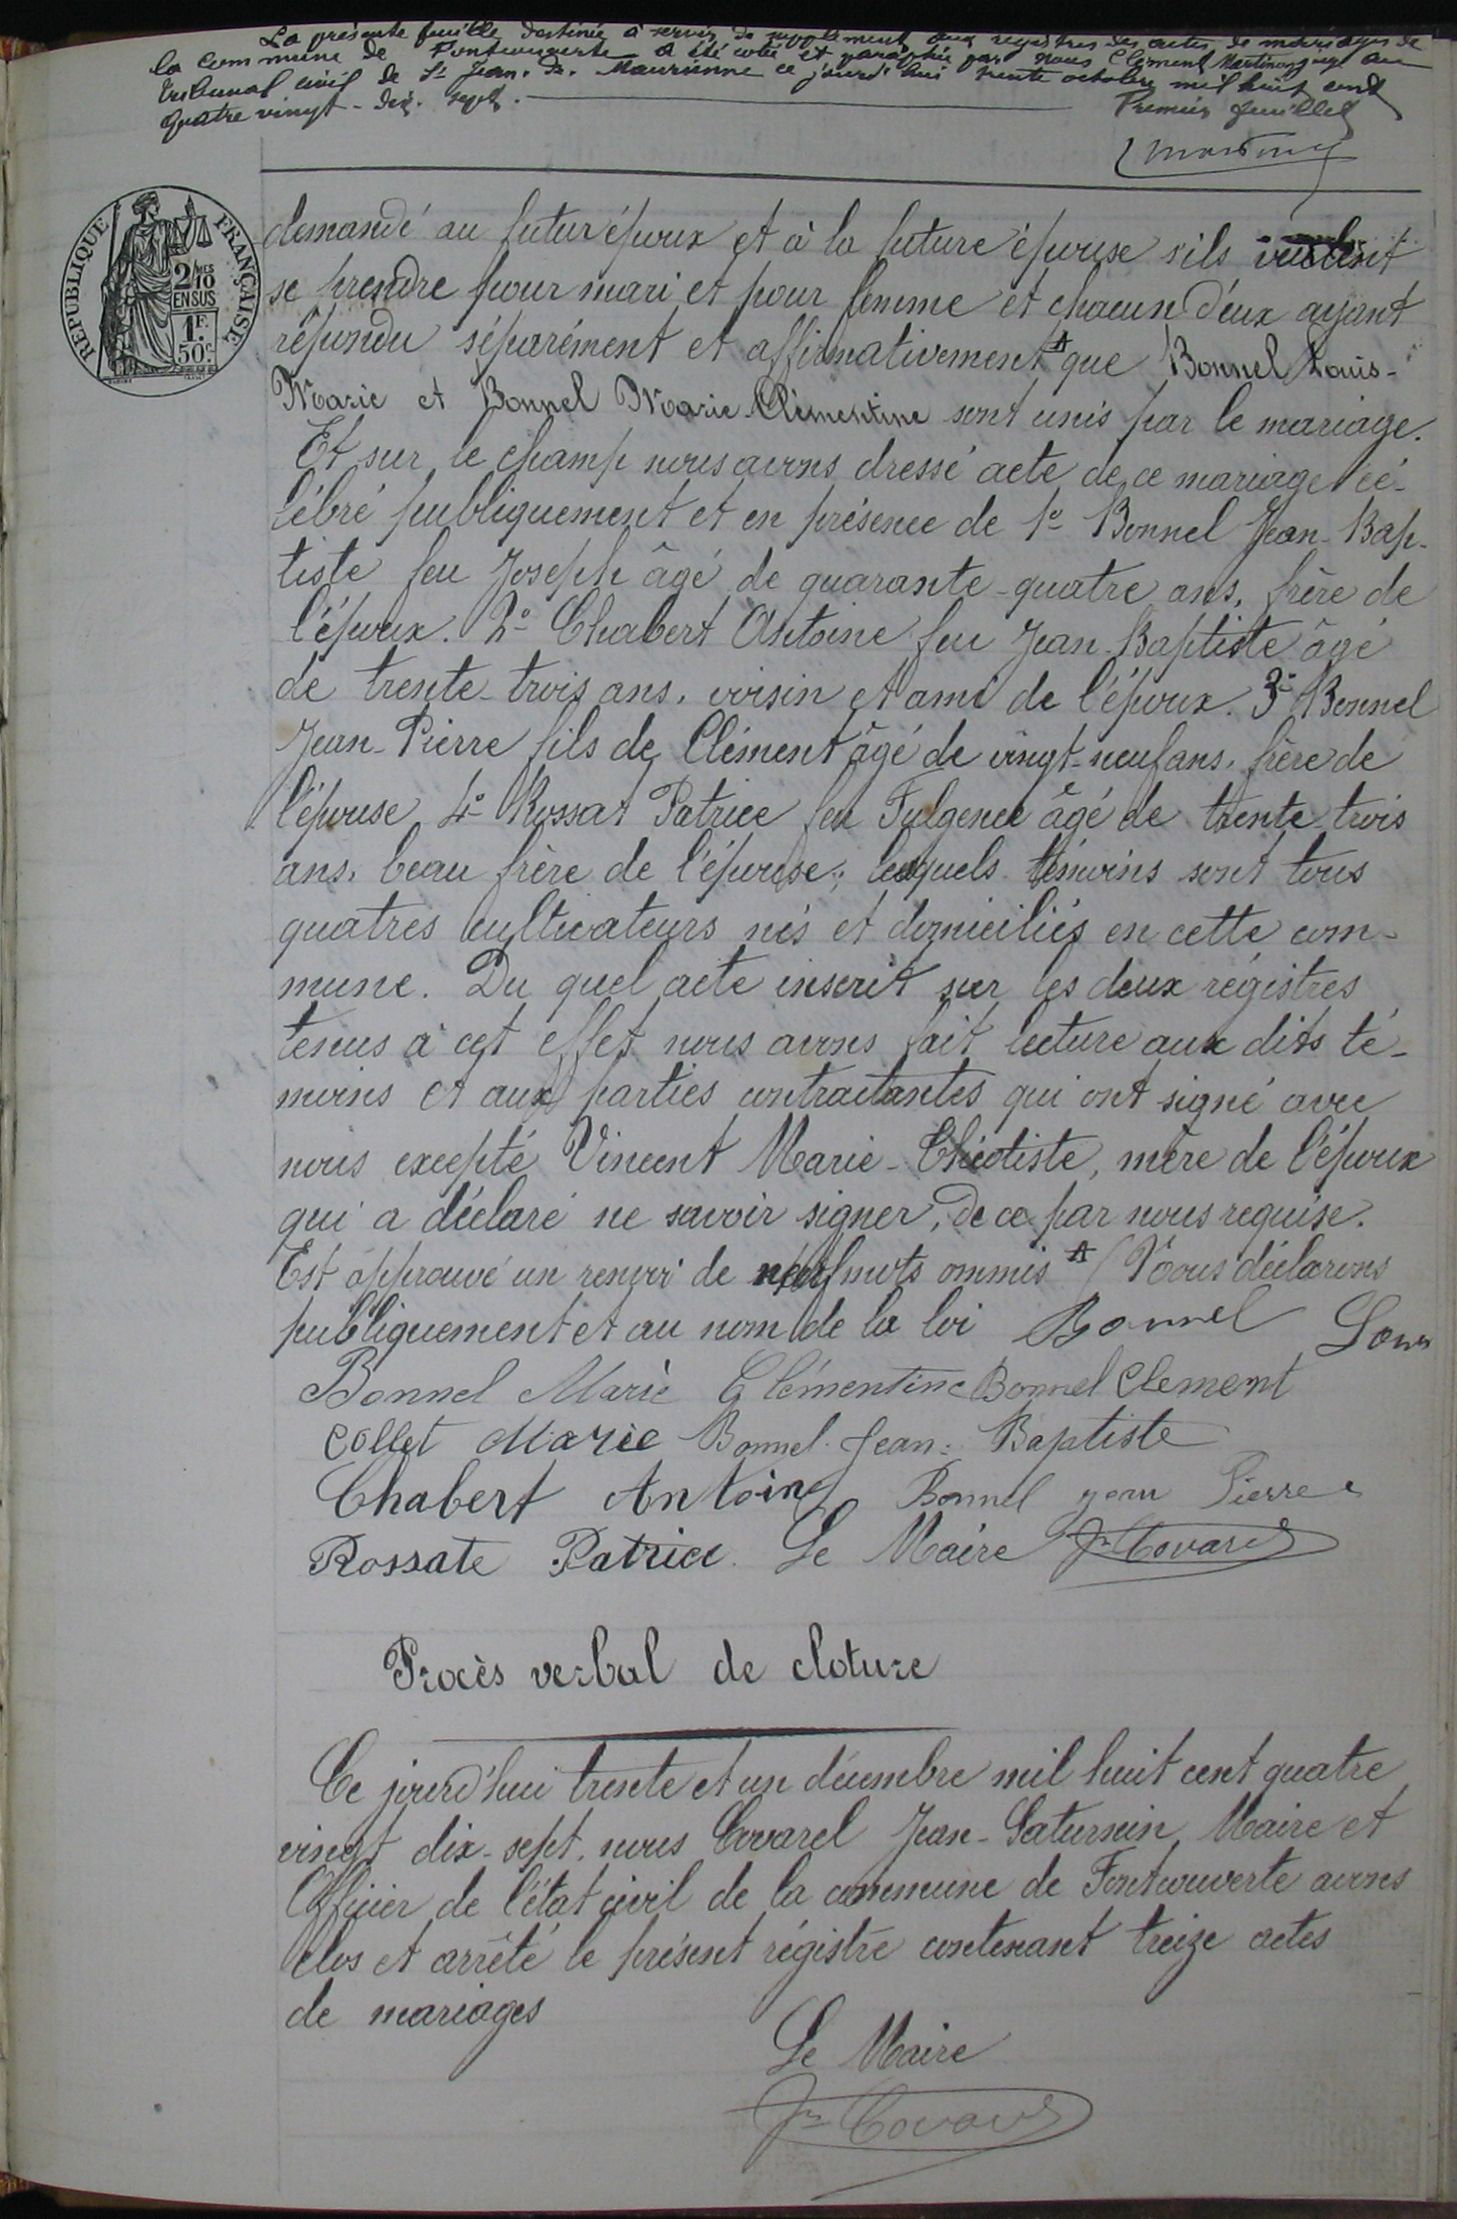 La présente feuille destinée à servir de supplément aux registres des actes de mariages de
la commune de Fontcouverte a été cotée et paraphée par nous Clément Martinon juge au
tribunal civil de St Jean-de-Maurienne ce jourd'hui trente octobre mil huit cent
quatre vingt-dix-sept.
Premier feuillet
REPUBLIQUE FRANÇAISE
2/10 MES
EN SUS
1 F.
50 C.
demandé au futur époux et à la future épouse s'ils veulent
se prendre pour mari et pour femme et chacun d'eux ayant
répondu séparément et affirmativement A que Bonnel Louis-
Marie et Bonnel Marie-Clémentine sont unis par le mariage.
Et sur le champ nous avons dressé acte de ce mariage cé-
lébré publiquement et en présence de 1º Bonnel Jean-Bap-
tiste feu Joseph âgé de quarante-quatre ans, frère de
l'époux. 2º Chabert Antoine feu Jean-Baptiste âgé
de trente-trois ans, voisin et ami de l'époux. 3º Bonnel
Jean-Pierre fils de Clément âgé de vingt-neuf ans, frère de
l'épouse 4º Rossat Patrice feu Fulgence âgé de trente-trois
ans, beau frère de l'épouse; lesquels témoins sont tous
quatres cultivateurs nés et domiciliés en cette com-
mune. Du quel acte inscrit sur les deux régistres
tenus à cet effet nous avons fait lecture aux dits té-
moins et aux parties contractantes qui ont signé avec
nous excepté Vincent Marie-Théotiste, mère de l'époux
qui a déclaré ne savoir signer, de ce par nous requise.
Est approuvé un renvoi de neuf mots ommis A / Nous déclarons
publiquement et au nom de la loi Bonnel Louis
Bonnel Marie Clémentine Bonnel Clement
Collet Marie Bonnel Jean-Baptiste
Chabert Antoine Bonnel jean Pierre
Rossate Patrice Le Maire Jn Covarel
Procès verbal de cloture
Ce jourd'hui trente et un décembre mil huit cent quatre
vingt dix-sept, nous Covarel Jean-Saturnin, Maire et
Officier de l'état civil de la commune de Fontcouverte avons
clos et arrêté le présent régistre contenant treize actes
de mariages
Le Maire
Jn Covarel